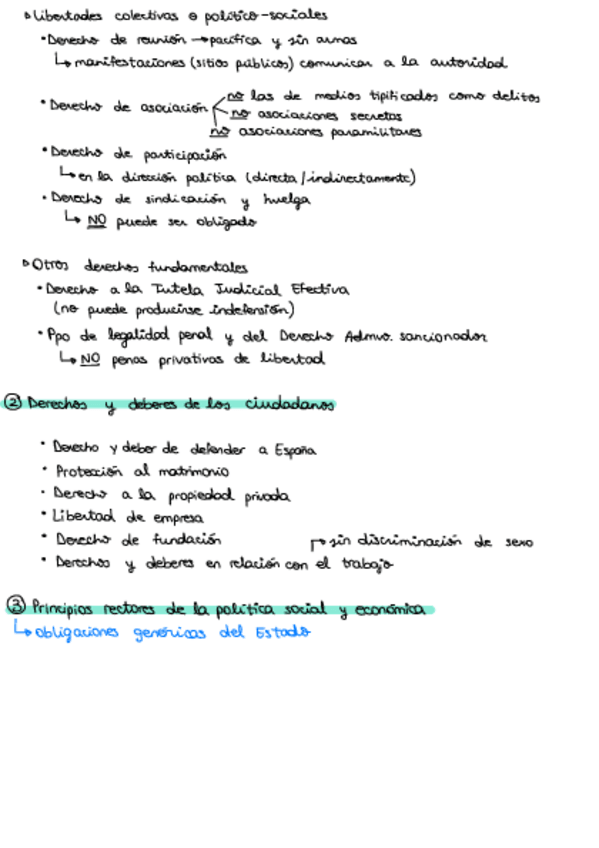 Libertades colectivas o político-sociales
• Derecho de reunión → pacífica y sin armas
↳ manifestaciones (sitios públicos) comunicar a la autoridad
no las de medios tipificados como delitos
• Derecho de asociación no asociaciones secretas
no asociaciones paramilitares
• Derecho de participación
↳ en la dirección política (directa/indirectamente)
• Derecho de sindicación y huelga
↳ NO puede ser obligado
Otros derechos fundamentales
• Derecho a la Tutela Judicial Efectiva
(no puede producirse indefensión)
• Ppo de legalidad penal y del Derecho Admvo. sancionador
↳ NO penas privativas de libertad
② Derechos y deberes de los ciudadanos
• Derecho y deber de defender a España
• Protección al matrimonio
• Derecho a la propiedad privada
• Libertad de empresa
• Derecho de fundación → sin discriminación de sexo
• Derechos y deberes en relación con el trabajo
③ Principios rectores de la política social y económica
↳ obligaciones genéricas del Estado